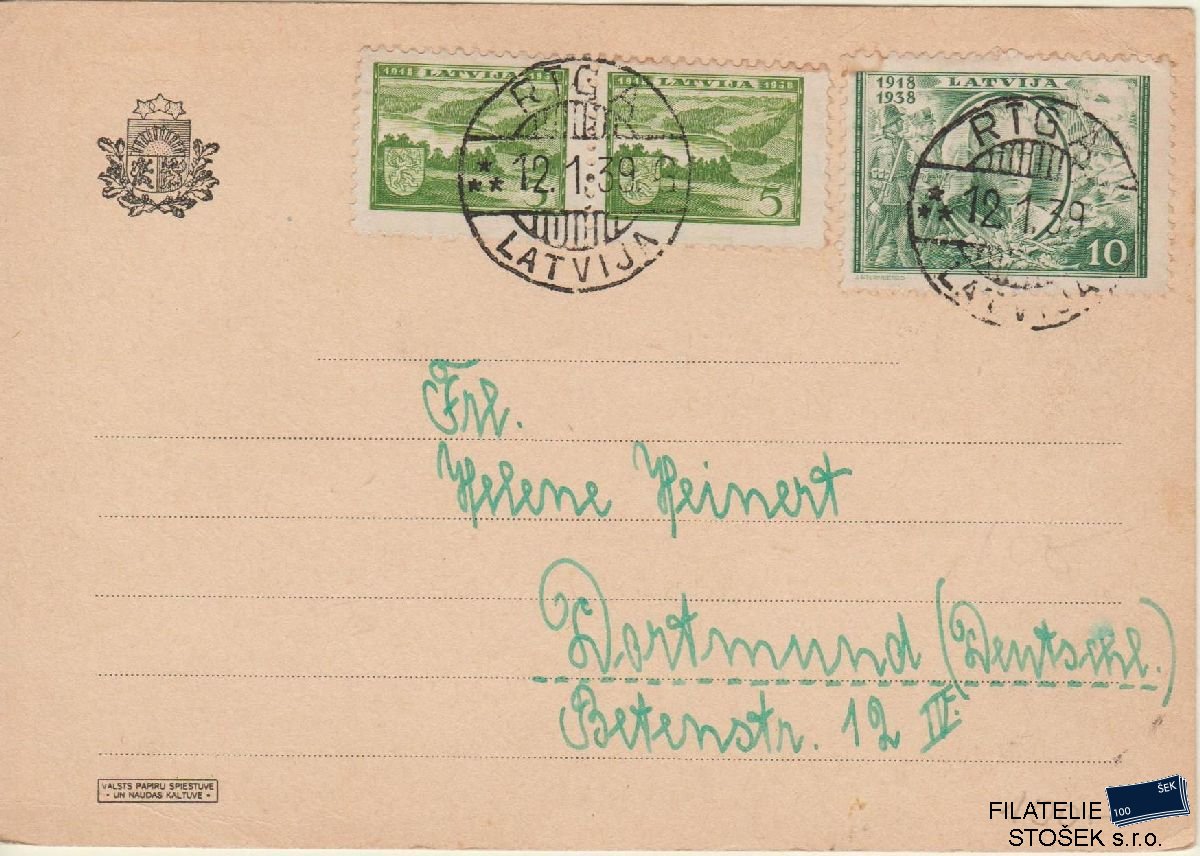 1918 LATVIJA 1938
5
1918 LATVIJA 1938
5
1918 LATVIJA
1938
10
RIGA
12.1.39
LATVIJA
RIGA
12.1.39
LATVIJA
Frl.
Helene Heinert
Dortmund (Deutschl.)
Betenstr. 12 IV.
VALSTS PAPIRU SPIESTUVE
- UN NAUDAS KALTUVE -
FILATELIE
STOŠEK s.r.o.
100 ŠEK